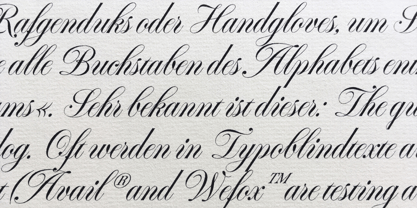 Rafgenduks oder Handgloves, um
alle Buchstaben des Alphabets
Sehr bekannt ist dieser: The
Oft werden in Typoblindtexte
(Avail® and Wefox™ are testing